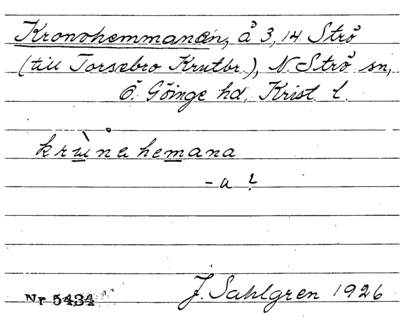 Kronohemmanen, å 3, 14 Strö
(till Torsebro Krutbr.), N. Strö sn,
Ö. Göinge hd, Krist l.
krùu̇nahemana
- a ?
Nr 5434
J. Sahlgren 1926